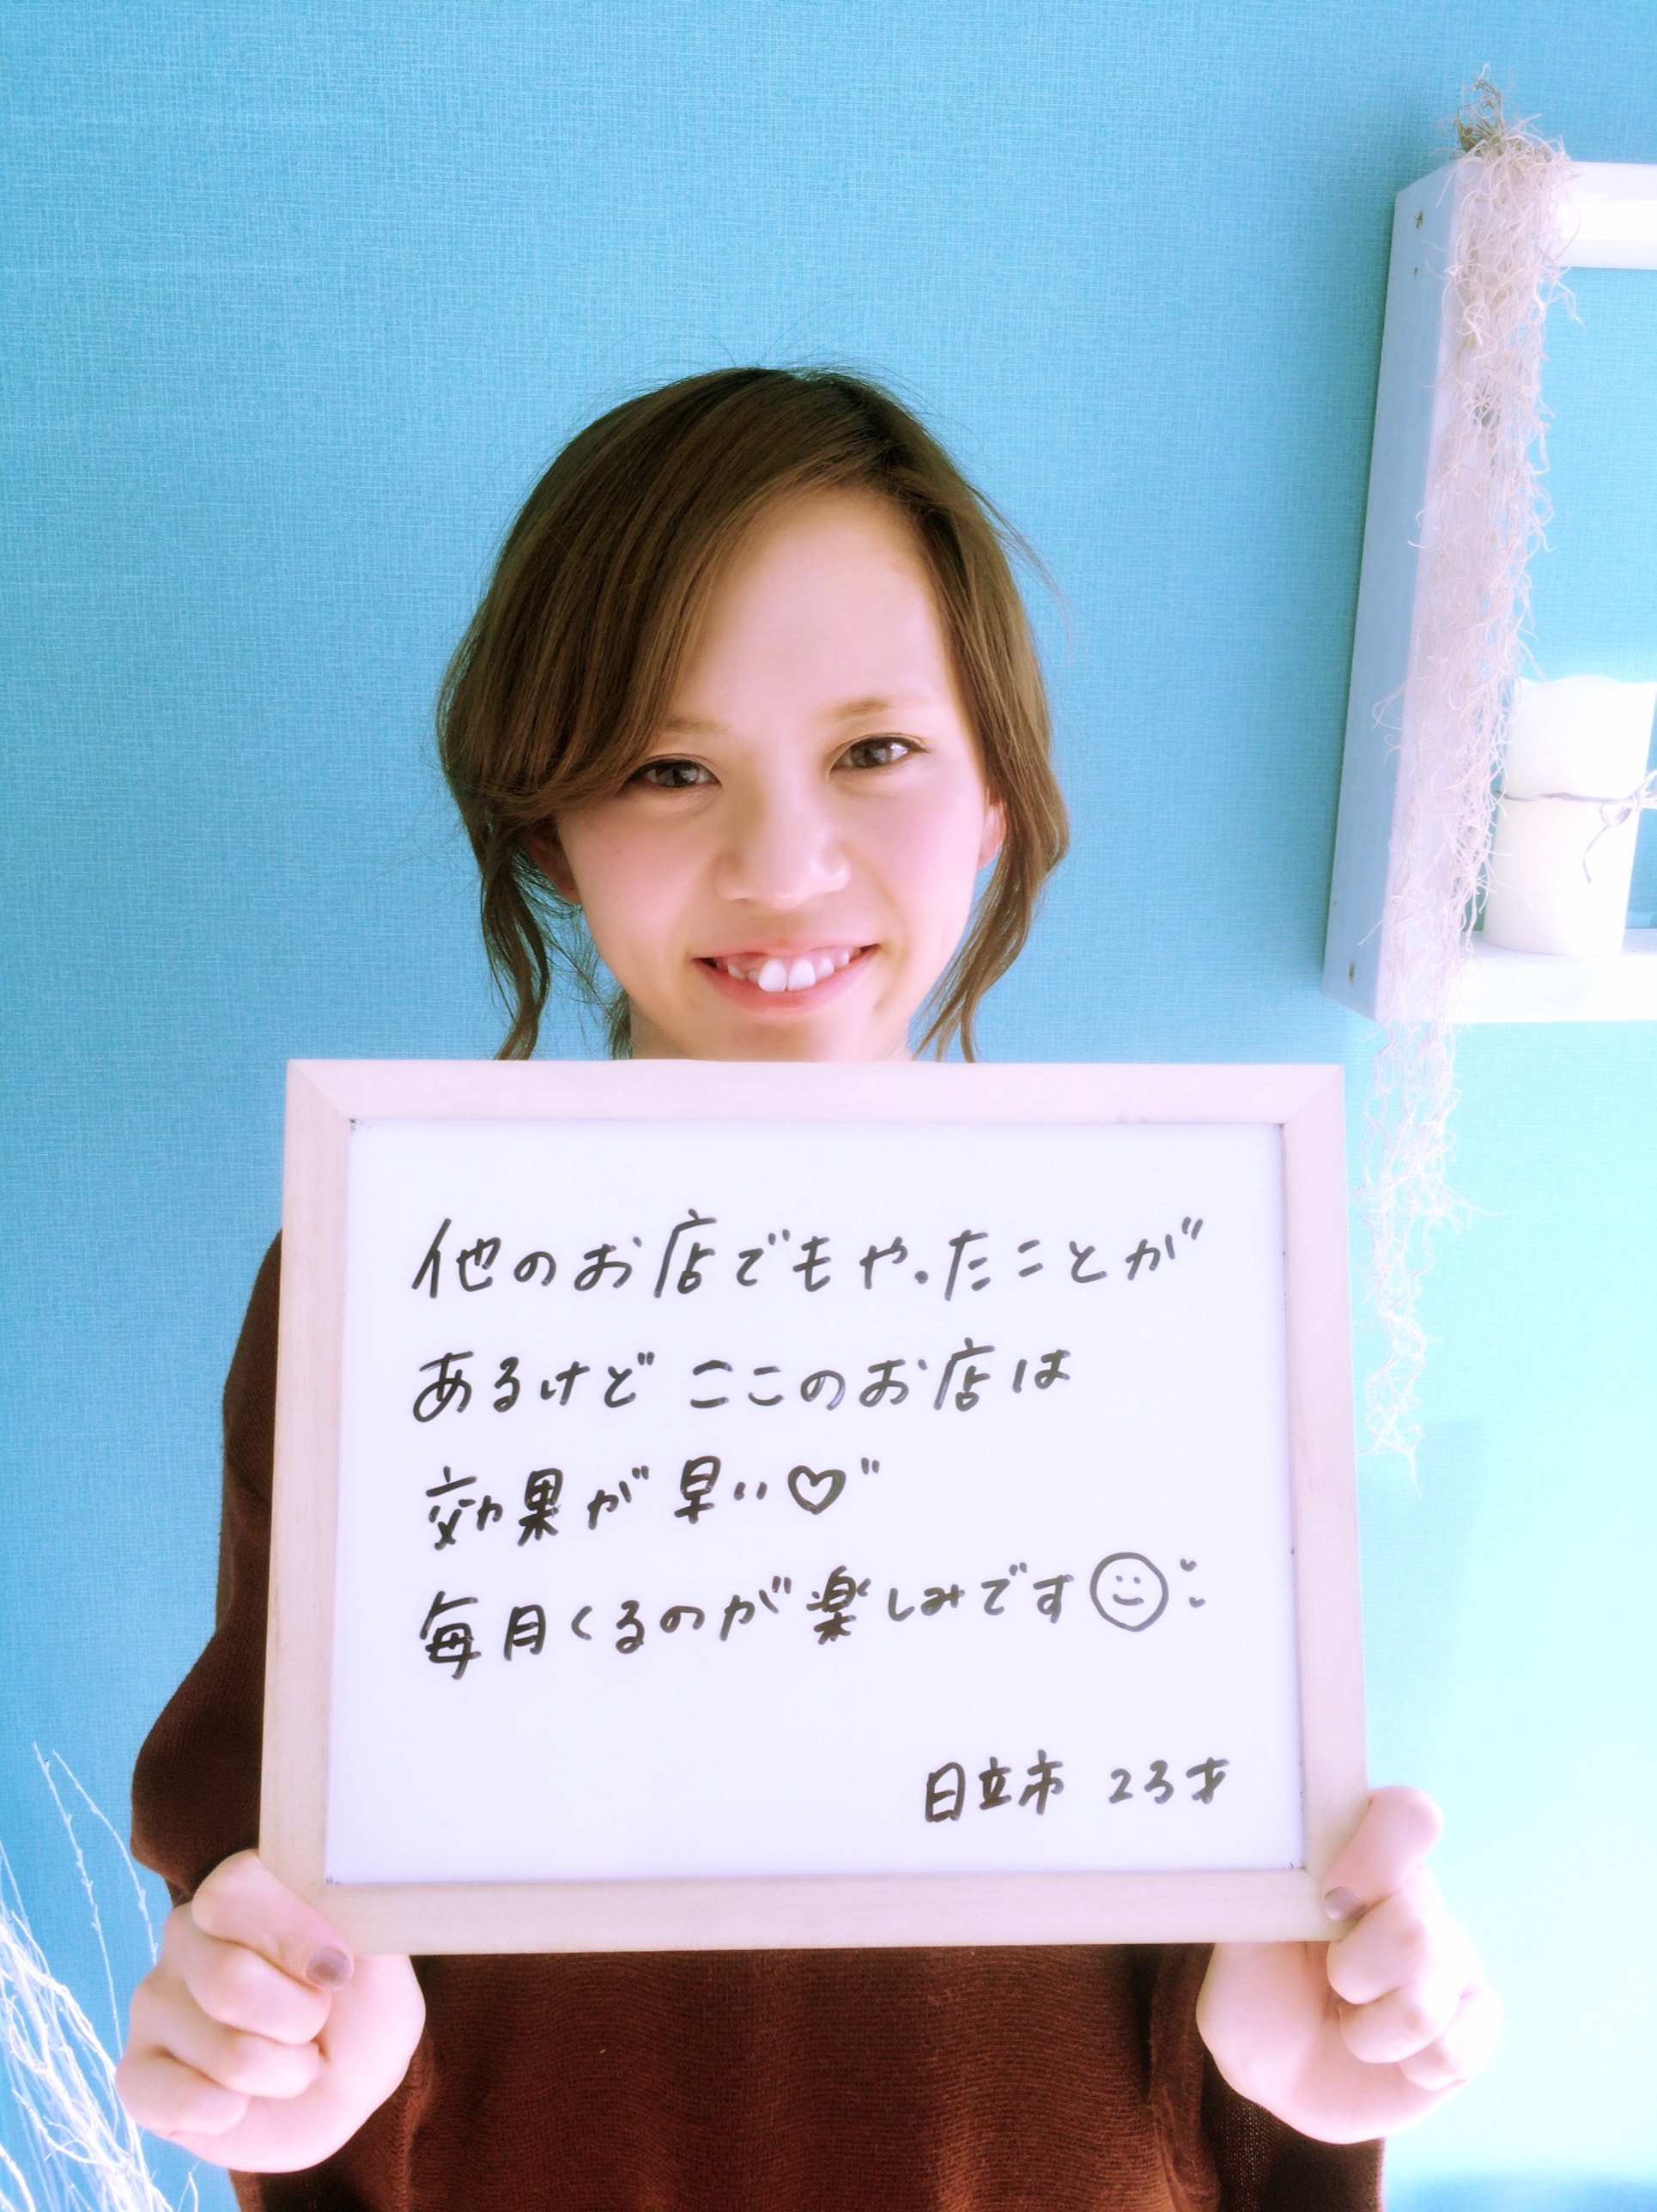 他のお店でもやったことが
あるけど ここのお店は
効果が早い♡
毎月くるのが楽しみです☺
日立市 23才